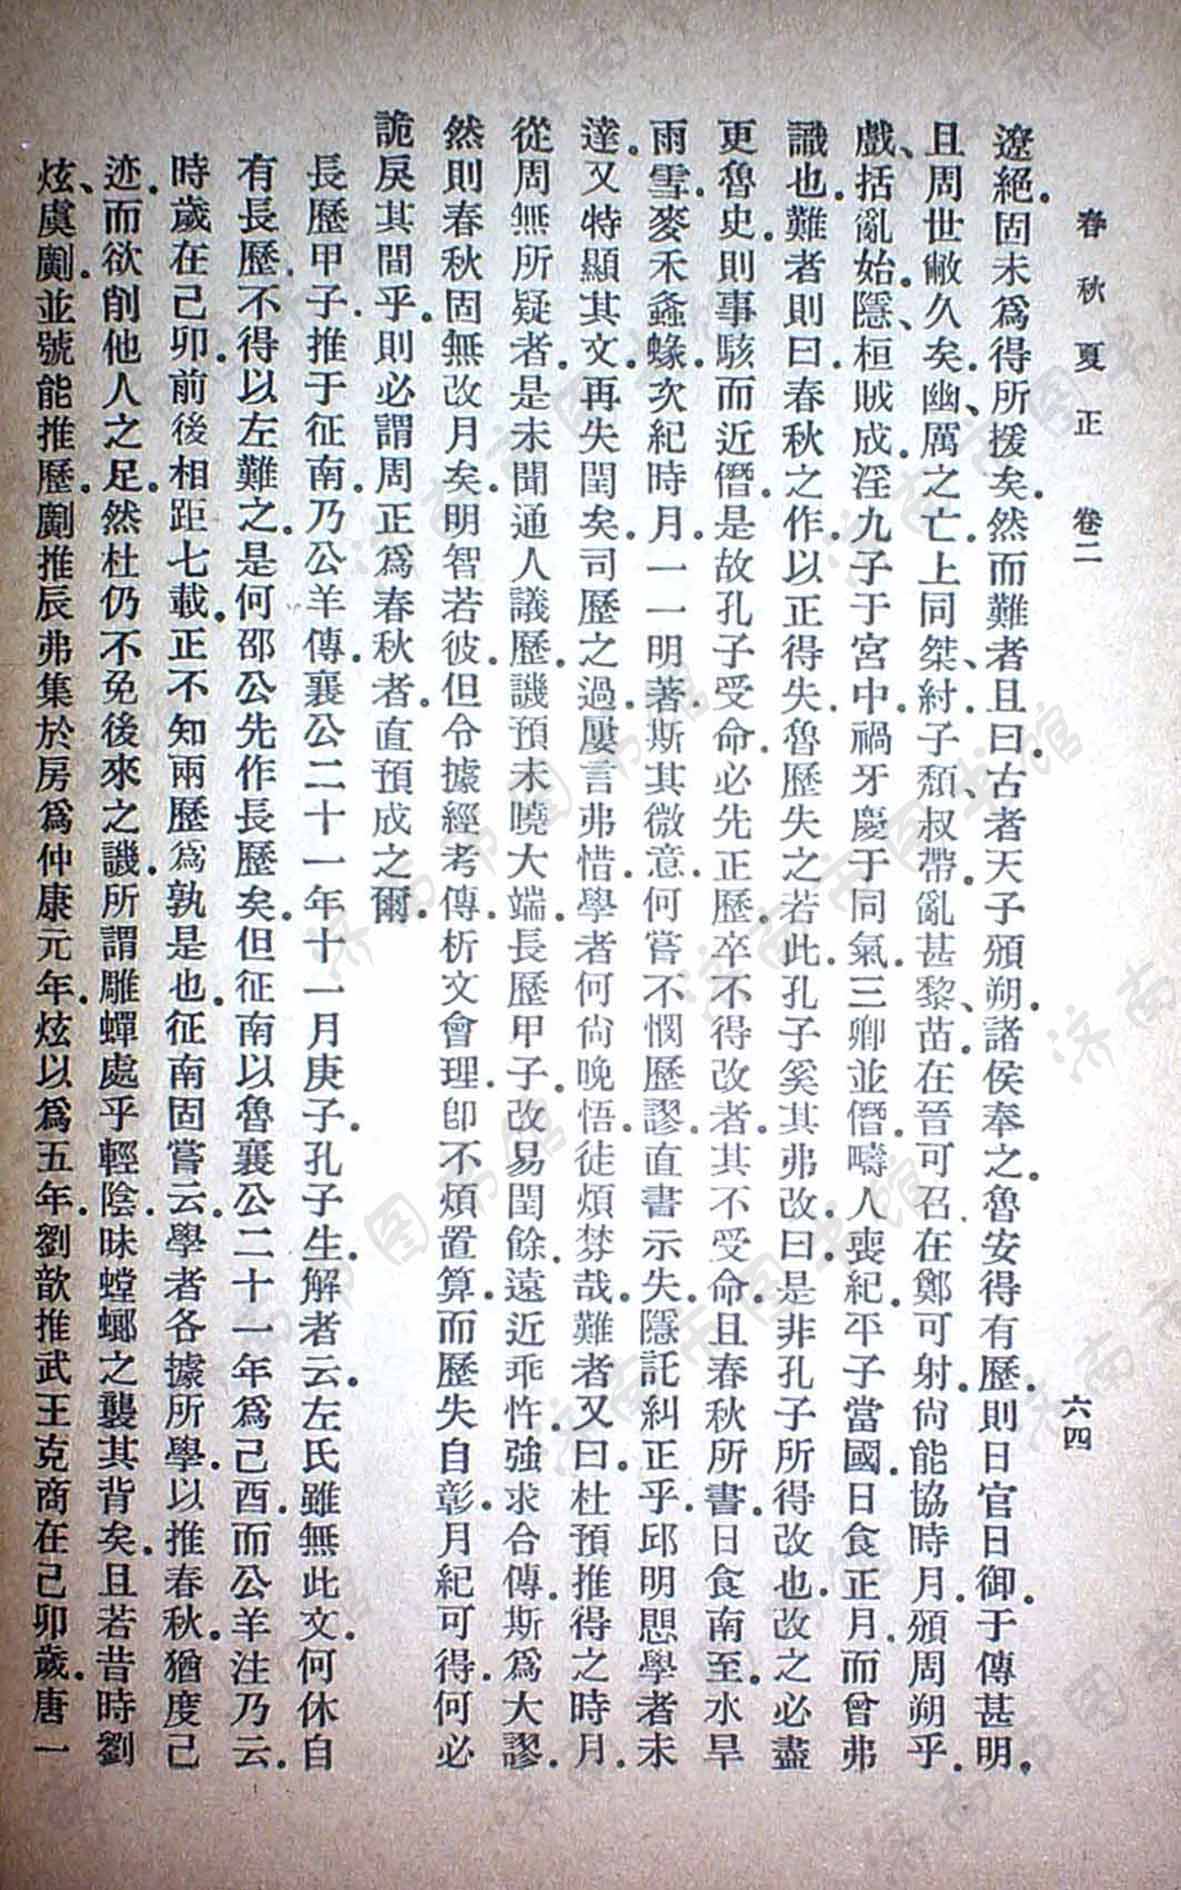 春秋夏正　卷二　六四
遼絕。固未爲得所援矣。然而難者且曰。古者天子頒朔。諸侯奉之。魯安得有歷。則日官日御。于傳甚明。
且周世敝久矣。幽、厲之亡。上同桀、紂。子頹、叔帶。亂甚黎、苗。在晉可召。在鄭可射。尙能協時月。頒周朔乎。
戲、括亂始。隱、桓賊成。淫九子于宮中。禍牙慶于同氣。三卿並僭。疇人喪紀。平子當國。日食正月。而曾弗
識也。難者則曰。春秋之作。以正得失。魯歷失之若此。孔子奚其弗改。曰。是非孔子所得改也。改之必盡
更魯史。則事駭而近僭。是故孔子受命。必先正歷。卒不得改者。其不受命。且春秋所書。日食南至。水旱
雨雪。麥禾螽蝝。次紀時月。一一明著。斯其微意。何嘗不憫歷謬。直書示失。隱託糾正乎。邱明愳學者未
達。又特顯其文。再失閏矣。司歷之過。屢言弗惜。學者何尙晚悟。徒煩棼哉。難者又曰。杜預推得之時月。
從周無所疑者。是未聞通人議歷。譏預未曉大端。長歷甲子。改易閏餘。遠近乖忤。強求合傳。斯爲大謬。
然則春秋固無改月矣。明智若彼。但令據經考傳。析文會理。卽不煩置算。而歷失自彰。月紀可得。何必
詭戾其間乎。則必謂周正爲春秋者。直預成之爾。
長歷甲子。推于征南。乃公羊傳。襄公二十一年十一月庚子。孔子生。解者云。左氏雖無此文。何休自
有長歷。不得以左難之。是何邵公先作長歷矣。但征南以魯襄公二十一年爲己酉。而公羊注乃云。
時歲在己卯。前後相距七載。正不知兩歷爲孰是也。征南固嘗云。學者各據所學。以推春秋。猶度己
迹。而欲削他人之足。然杜仍不免後來之譏。所謂雕蟬處乎輕陰。昧螳螂之襲其背矣。且若昔時劉
炫、虞𠠎。並號能推歷。𠠎推辰弗集於房。爲仲康元年。炫以爲五年。劉歆推武王克商在己卯歲。唐一